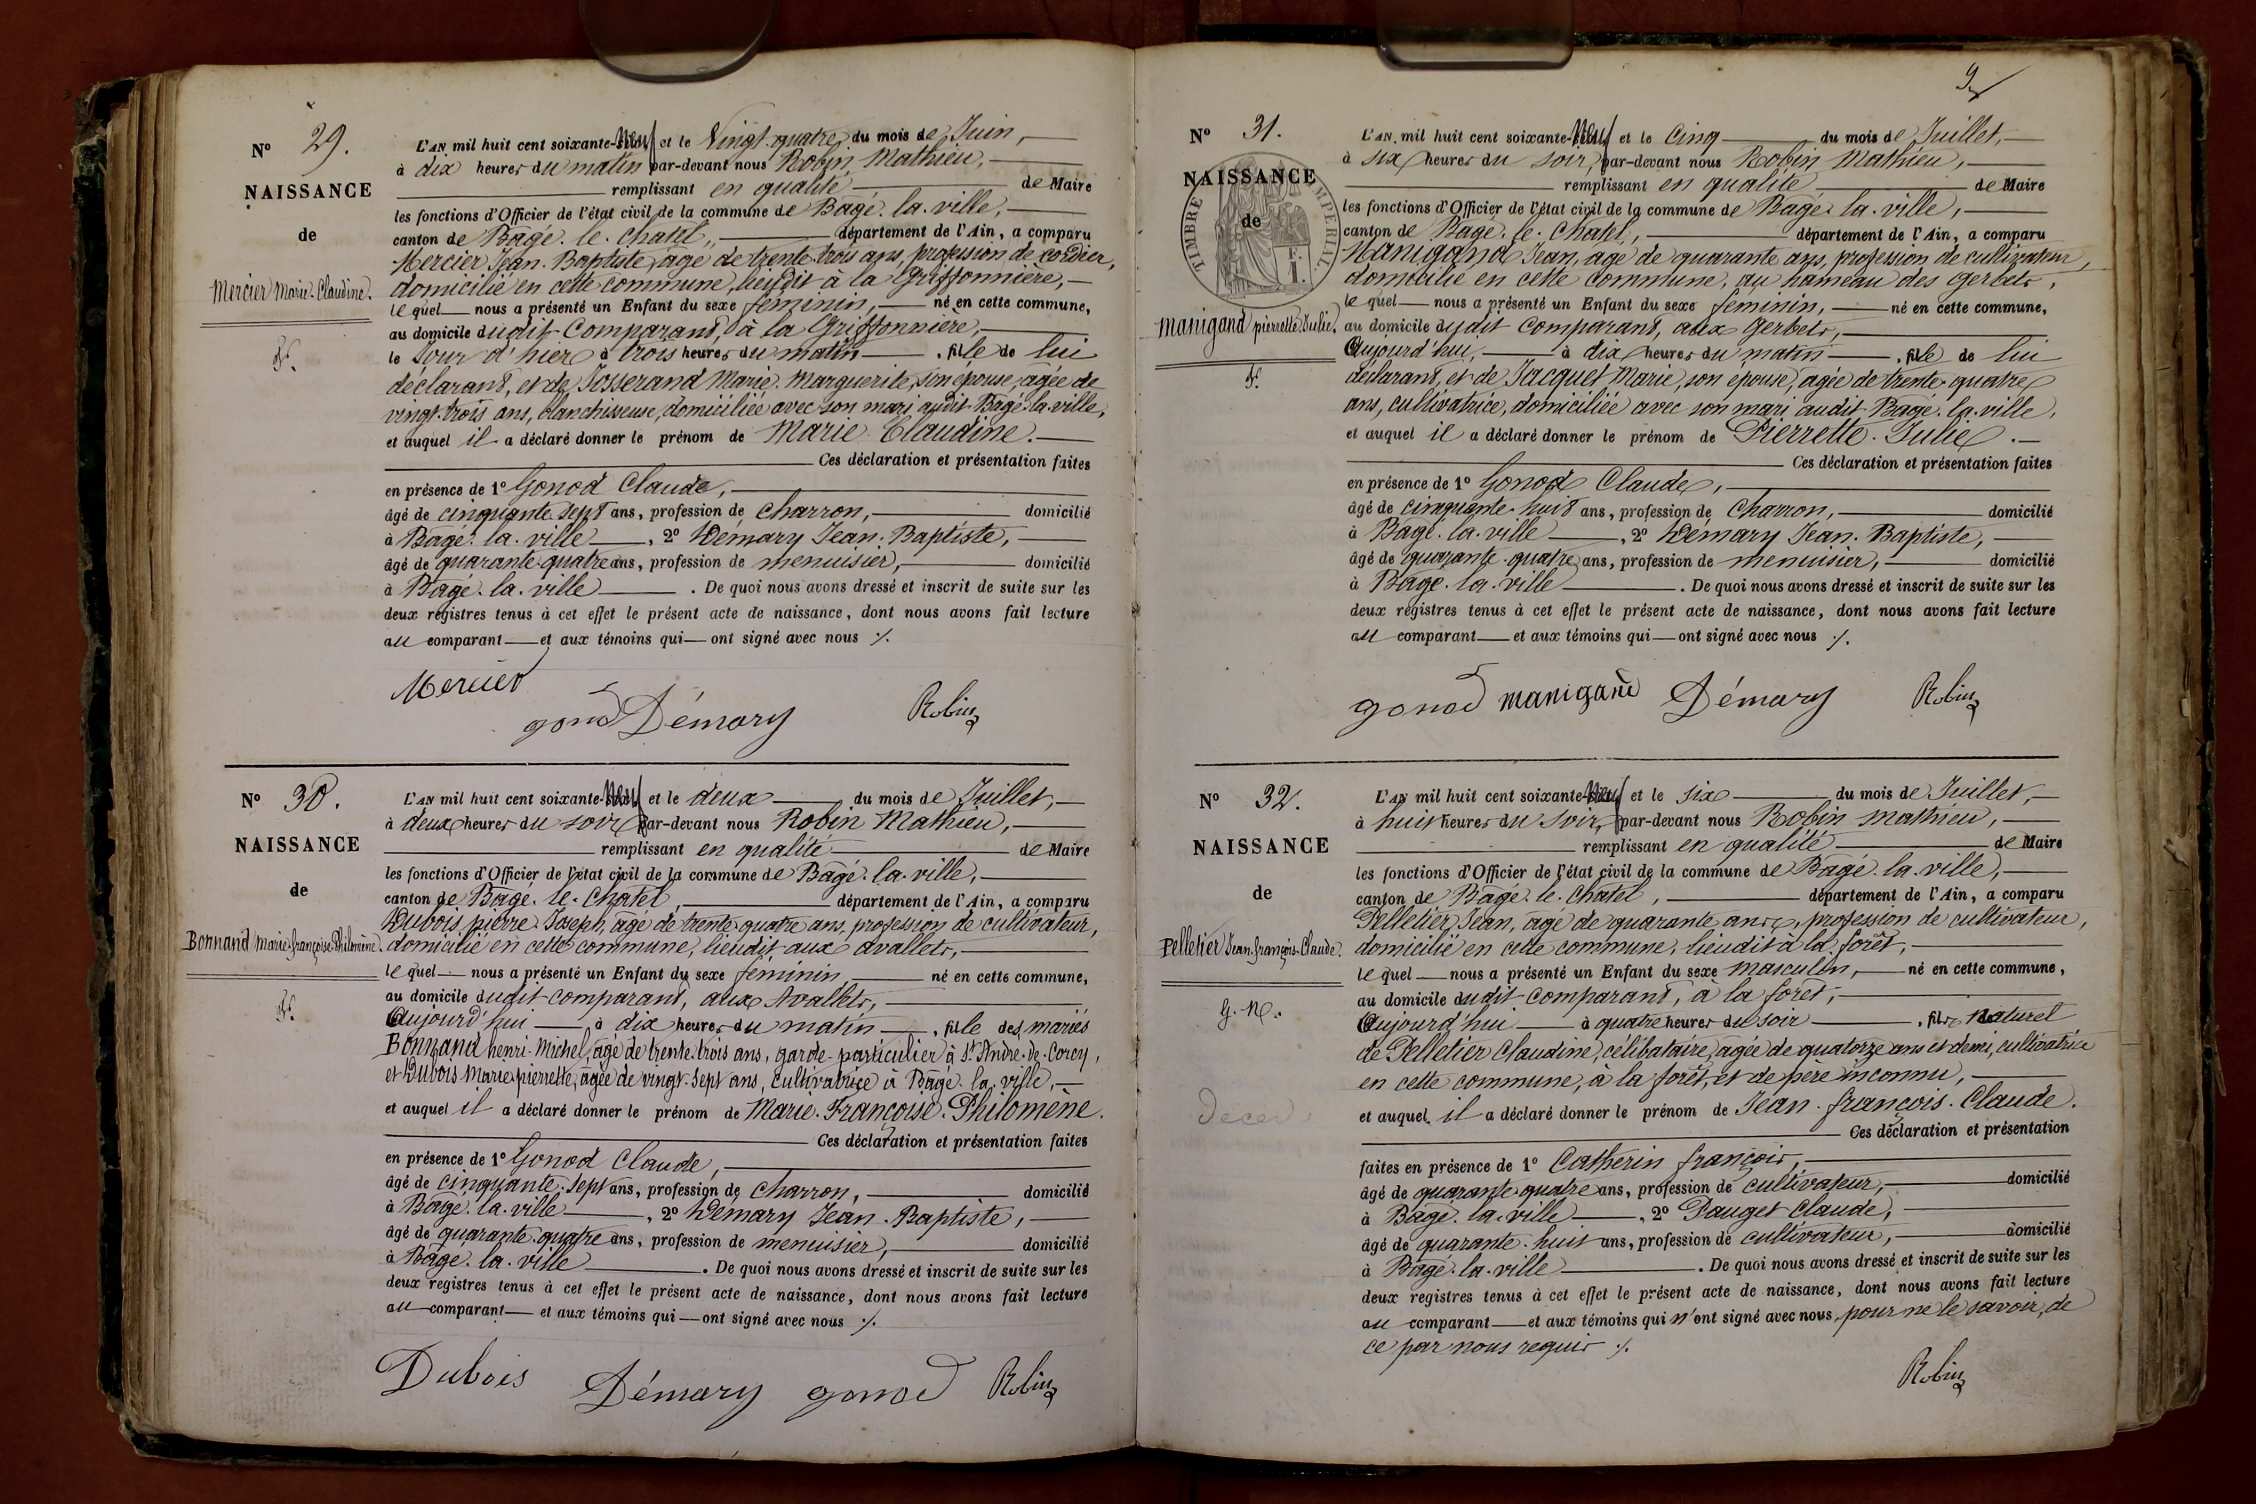 N° 29.
NAISSANCE
de
Mercier Marie-Claudine.
f.
L'AN mil huit cent soixante-Neuf et le Vingt-quatre du mois de Juin,
à dix heures du matin par-devant nous Robin Mathieu,
remplissant en qualité de Maire
les fonctions d'Officier de l'état civil de la commune de Bagé-la-ville,
canton de Bagé-le-Chatel, département de l'Ain, a comparu
Mercier Jean-Baptiste, âgé de trente-trois ans, profession de cordier,
domicilié en cette commune, lieudit à la Griffonnière,
lequel nous a présenté un Enfant du sexe féminin, né en cette commune,
au domicile dudit Comparant, à la Griffonnière,
le Jour d'hier à trois heures du matin, fille de lui
déclarant, et de Josserand Marie-Marguerite, son épouse, agée de
vingt-trois ans, blanchisseuse, domiciliée avec son mari audit Bagé-la-ville,
et auquel il a déclaré donner le prénom de Marie-Claudine.
Ces déclaration et présentation faites
en présence de 1° Gonod Claude,
âgé de cinquante-sept ans, profession de Charron, domicilié
à Bagé-la-ville, 2° Démary Jean-Baptiste,
âgé de quarante-quatre ans, profession de menuisier, domicilié
à Bagé-la-ville. De quoi nous avons dressé et inscrit de suite sur les
deux registres tenus à cet effet le présent acte de naissance, dont nous avons fait lecture
au comparant et aux témoins qui ont signé avec nous ./.
Mercier
gonod Démary Robin
N° 30.
NAISSANCE
de
Bonnand marie-françoise-Philomène.
f.
L'AN mil huit cent soixante-Neuf et le deux du mois de Juillet,
à deux heures du soir par-devant nous Robin Mathieu,
remplissant en qualité de Maire
les fonctions d'Officier de l'état civil de la commune de Bagé-la-ville,
canton de Bagé-le-Chatel, département de l'Ain, a comparu
Dubois pierre-Joseph, âgé de trente-quatre ans, profession de cultivateur,
domicilié en cette commune, lieudit aux avallets,
lequel nous a présenté un Enfant du sexe féminin né en cette commune,
au domicile dudit comparant, aux Avallets,
Aujourd'hui à dix heures du matin, fille des mariés
Bonnand henri-Michel, âgé de trente-trois ans, garde-particulier à St André-de-Corcy,
et Dubois Marie-pierrette, âgée de vingt-sept ans, cultivatrice à Bagé-la-ville,
et auquel il a déclaré donner le prénom de Marie-Françoise-Philomène.
Ces déclaration et présentation faites
en présence de 1° Gonod Claude,
âgé de cinquante-sept ans, profession de charron, domicilié
à Bagé-la-ville, 2° Démary Jean-Baptiste,
âgé de quarante-quatre ans, profession de menuisier, domicilié
à Bagé-la-ville. De quoi nous avons dressé et inscrit de suite sur les
deux registres tenus à cet effet le présent acte de naissance, dont nous avons fait lecture
au comparant et aux témoins qui ont signé avec nous ./.
Dubois Démary gonod Robin
9
N° 31.
NAISSANCE
de
TIMBRE IMPERIAL
manigand pierrette-Julie.
f.
L'AN mil huit cent soixante-Neuf et le Cinq du mois de Juillet,
à six heures du soir, par-devant nous Robin Mathieu,
remplissant en qualité de Maire
les fonctions d'Officier de l'état civil de la commune de Bagé-la-ville,
canton de Bagé-le-Chatel, département de l'Ain, a comparu
Manigand Jean, âgé de quarante ans, profession de cultivateur,
domicilié en cette commune, au hameau des Gerbets,
lequel nous a présenté un Enfant du sexe féminin, né en cette commune,
au domicile dudit comparant, aux Gerbets,
Aujourd'hui, à dix heures du matin, fille de lui
déclarant, et de Jacquet Marie, son épouse, agée de trente-quatre
ans, cultivatrice, domiciliée avec son mari audit Bagé-la-ville,
et auquel il a déclaré donner le prénom de Pierrette-Julie.
Ces déclaration et présentation faites
en présence de 1° Gonod Claude,
âgé de cinquante-huit ans, profession de Charron, domicilié
à Bagé-la-ville, 2° Démary Jean-Baptiste,
âgé de quarante-quatre ans, profession de menuisier, domicilié
à Bagé-la-ville. De quoi nous avons dressé et inscrit de suite sur les
deux registres tenus à cet effet le présent acte de naissance, dont nous avons fait lecture
au comparant et aux témoins qui ont signé avec nous ./.
gonod manigand Démary Robin
N° 32.
NAISSANCE
de
Pelletier Jean-françois-Claude.
G. N.
deced
L'AN mil huit cent soixante-Neuf et le six du mois de Juillet,
à huit heures du soir, par-devant nous Robin Mathieu,
remplissant en qualité de Maire
les fonctions d'Officier de l'état civil de la commune de Bagé-la-ville,
canton de Bagé-le-Chatel, département de l'Ain, a comparu
Pelletier Jean, âgé de quarante ans, profession de cultivateur,
domicilié en cette commune, lieudit à la forêt,
lequel nous a présenté un Enfant du sexe masculin, né en cette commune,
au domicile dudit comparant, à la forêt,
Aujourd'hui à quatre heures du soir, fils naturel
de Pelletier Claudine, célibataire, agée de quatorze ans et demi, cultivatrice
en cette commune, à la forêt, et de père inconnu,
et auquel il a déclaré donner le prénom de Jean-françois-Claude.
Ces déclaration et présentation
faites en présence de 1° Catherin françois,
âgé de quarante-quatre ans, profession de cultivateur, domicilié
à Bagé-la-ville, 2° Pauget Claude,
âgé de quarante-huit ans, profession de cultivateur, domicilié
à Bagé-la-ville. De quoi nous avons dressé et inscrit de suite sur les
deux registres tenus à cet effet le présent acte de naissance, dont nous avons fait lecture
au comparant et aux témoins qui n'ont signé avec nous, pour ne le savoir, de
ce par nous requis ./.
Robin